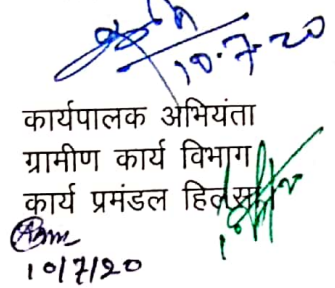 10.7.20
कार्यपालक अभियंता
ग्रामीण कार्य विभाग
कार्य प्रमंडल हिलसा
10/7/20